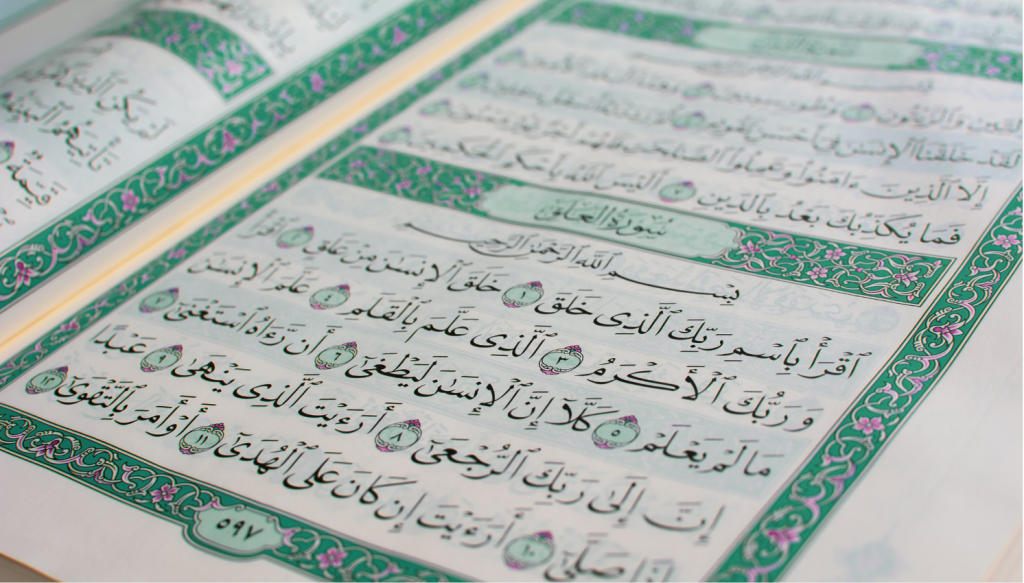 وَٱلتِّينِ وَٱلزَّيْتُونِ ١ وَطُورِ سِينِينَ ٢
لَقَدْ خَلَقْنَا ٱلْإِنسَٰنَ فِىٓ أَحْسَنِ تَقْوِيمٍ ٤ ثُمَّ رَدَدْنَٰهُ أَسْفَلَ سَٰفِلِينَ ٥
إِلَّا ٱلَّذِينَ ءَامَنُوا۟ وَعَمِلُوا۟ ٱلصَّٰلِحَٰتِ فَلَهُمْ أَجْرٌ غَيْرُ مَمْنُونٍ ٦
فَمَا يُكَذِّبُكَ بَعْدُ بِٱلدِّينِ ٧ أَلَيْسَ ٱللَّهُ بِأَحْكَمِ ٱلْحَٰكِمِينَ ٨
سُورَةُ العَلَقِ
بِسْمِ ٱللَّهِ ٱلرَّحْمَٰنِ ٱلرَّحِيمِ
ٱقْرَأْ بِٱسْمِ رَبِّكَ ٱلَّذِى خَلَقَ ١ خَلَقَ ٱلْإِنسَٰنَ مِنْ عَلَقٍ ٢ ٱقْرَأْ
وَرَبُّكَ ٱلْأَكْرَمُ ٣ ٱلَّذِى عَلَّمَ بِٱلْقَلَمِ ٤ عَلَّمَ ٱلْإِنسَٰنَ
مَا لَمْ يَعْلَمْ ٥ كَلَّآ إِنَّ ٱلْإِنسَٰنَ لَيَطْغَىٰٓ ٦ أَن رَّءَاهُ ٱسْتَغْنَىٰٓ ٧
إِنَّ إِلَىٰ رَبِّكَ ٱلرُّجْعَىٰٓ ٨ أَرَءَيْتَ ٱلَّذِى يَنْهَىٰ ٩ عَبْدًا
إِذَا صَلَّىٰٓ ١٠ أَرَءَيْتَ إِن كَانَ عَلَى ٱلْهُدَىٰٓ ١١ أَوْ أَمَرَ بِٱلتَّقْوَىٰٓ ١٢
٥٩٧
لَمْ يَكُنِ ٱلَّذِينَ
تَأْتِيَهُمُ ٱلْبَيِّنَةُ
قَيِّمَةٌ